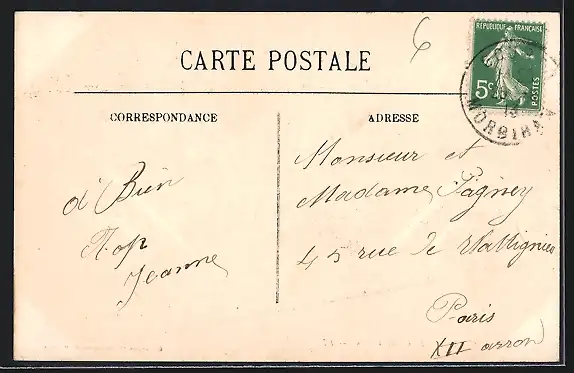 6
RÉPUBLIQUE FRANÇAISE
5c
POSTES
MORBIHAN
CARTE POSTALE
CORRESPONDANCE
ADRESSE
d'Bien
Top
Jeanne
Monsieur et
Madame Pagney
45 rue de Wattignies
Paris
XII arron